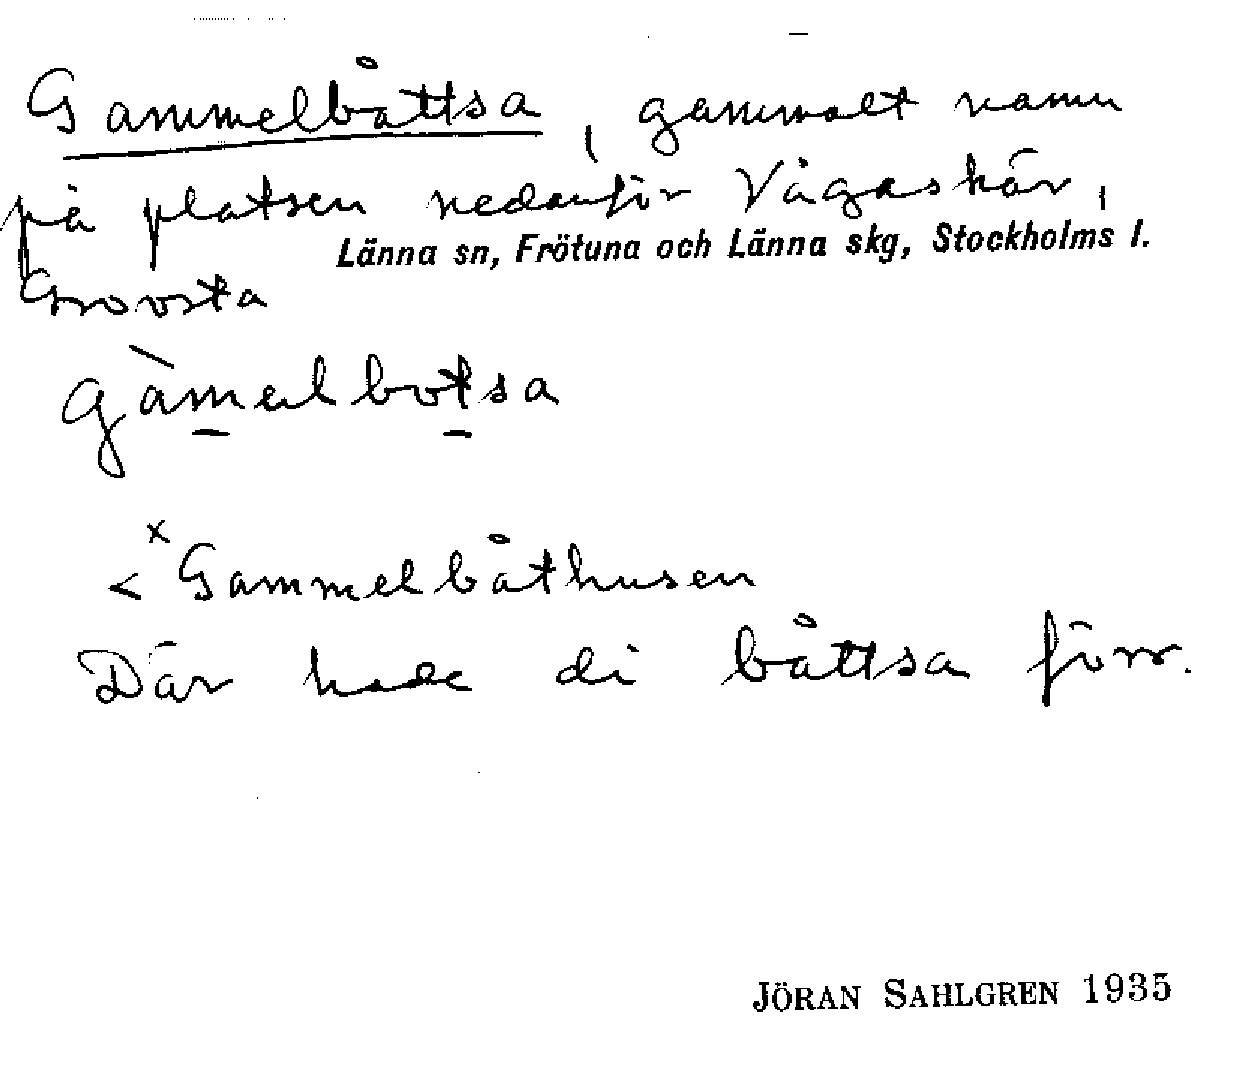 Gammelbåttsa, gammalt namn
på platsen nedanför Vågaskär,
Länna sn, Frötuna och Länna skg, Stockholms l.
Grovsta
gàmelbotsa
< ˣGammelbåthusen
Där hade di båttsa förr.
JÖRAN SAHLGREN 1935